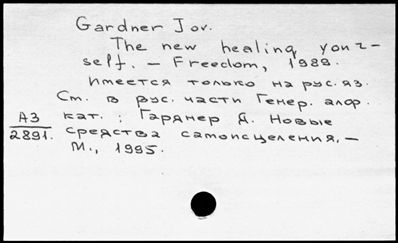 Gardner Jov.
The new healing your-
self. – Freedom, 1989.
Имеется только на рус. яз.
См. в рус. части Генер. алф.
кат.: Гарднер Д. Новые
А3
2891. средства самоисцеления. –
М., 1995.